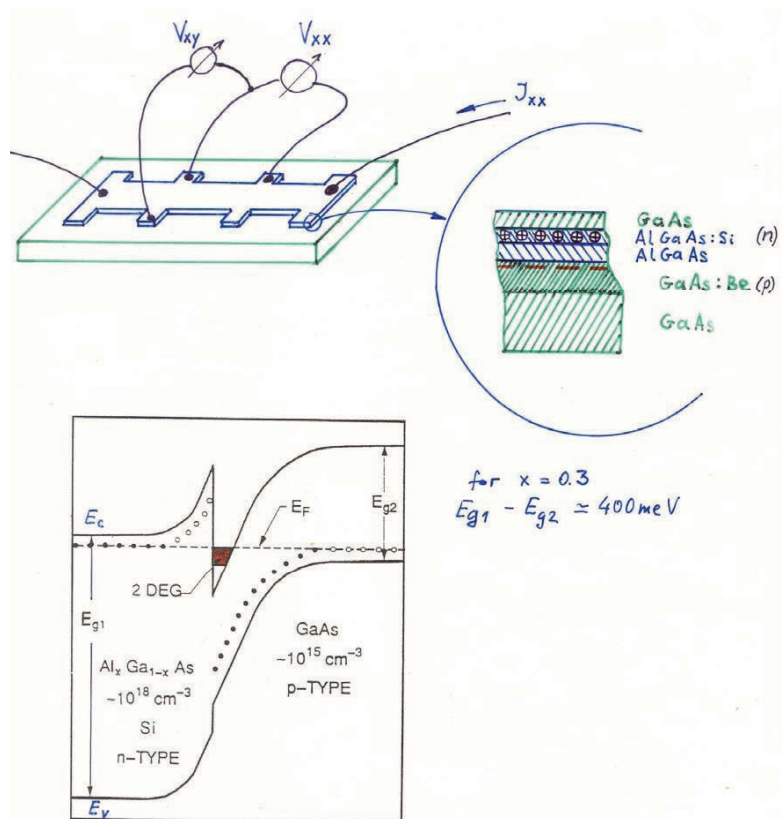 Vxy Vxx
Jxx
GaAs
AlGaAs:Si (n)
AlGaAs
GaAs:Be (p)
GaAs
for x = 0.3
Eg1 - Eg2 ≃ 400 meV
Ec
EF
Eg2
2 DEG
Eg1
GaAs
~10¹⁵ cm⁻³
p-TYPE
AlxGa1-xAs
~10¹⁸ cm⁻³
Si
n-TYPE
Ev